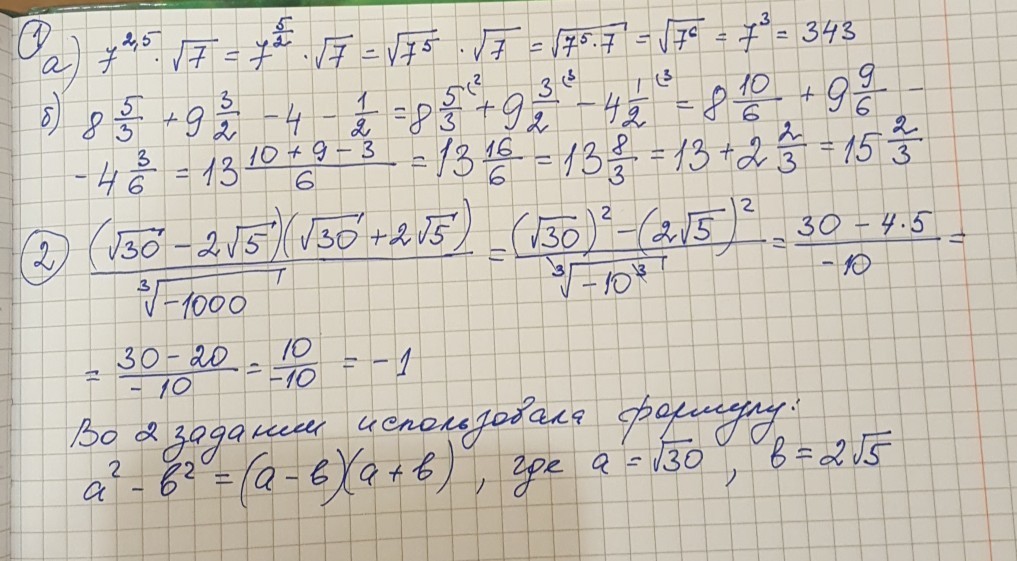 ① а) 7^{2,5} · √7 = 7^{5/2} · √7 = √7⁵ · √7 = √7⁵·7 = √7⁶ = 7³ = 343
б) 8 5/3 + 9 3/2 - 4 - 1/2 = 8 5/3⁽² + 9 3/2⁽³ - 4 1/2⁽³ = 8 10/6 + 9 9/6 -
- 4 3/6 = 13 (10 + 9 - 3)/6 = 13 16/6 = 13 8/3 = 13 + 2 2/3 = 15 2/3
② (√30 - 2√5)(√30 + 2√5)/∛-1000 = ((√30)² - (2√5)²)/∛-10³ = (30 - 4·5)/-10 =
= (30 - 20)/-10 = 10/-10 = -1
Во 2 задании использовала формулу:
a² - b² = (a - b)(a + b), где a = √30, b = 2√5